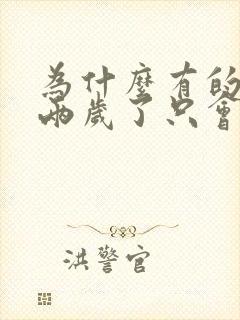 為什麼有的
兩歲了只會
洪警官